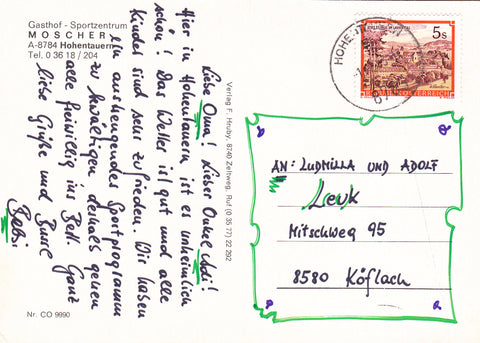 Gasthof - Sportzentrum
MOSCHER
A-8784 Hohentauern
Tel. 0 36 18 / 204
Liebe Oma! Lieber Onkel Adi!
Hier in Hohentauern ist es unheimlich
schön! Das Wetter ist gut und alle
Kinder sind sehr zufrieden. Wir haben
ein anstrengendes Sportprogramm
zu bewältigen deshalb gehen
alle freiwillig ins Bett. Ganz
liebe Grüße und Bussi
Nr. CO 9990
Verlag F. Hruby, 8740 Zeltweg, Ruf (0 35 77) 22 292
HOHENT
5s
REPUBLIK ÖSTERREICH
AN: LUDMILLA UND ADOLF
Leuk
Mitschweg 95
8580 Köflach